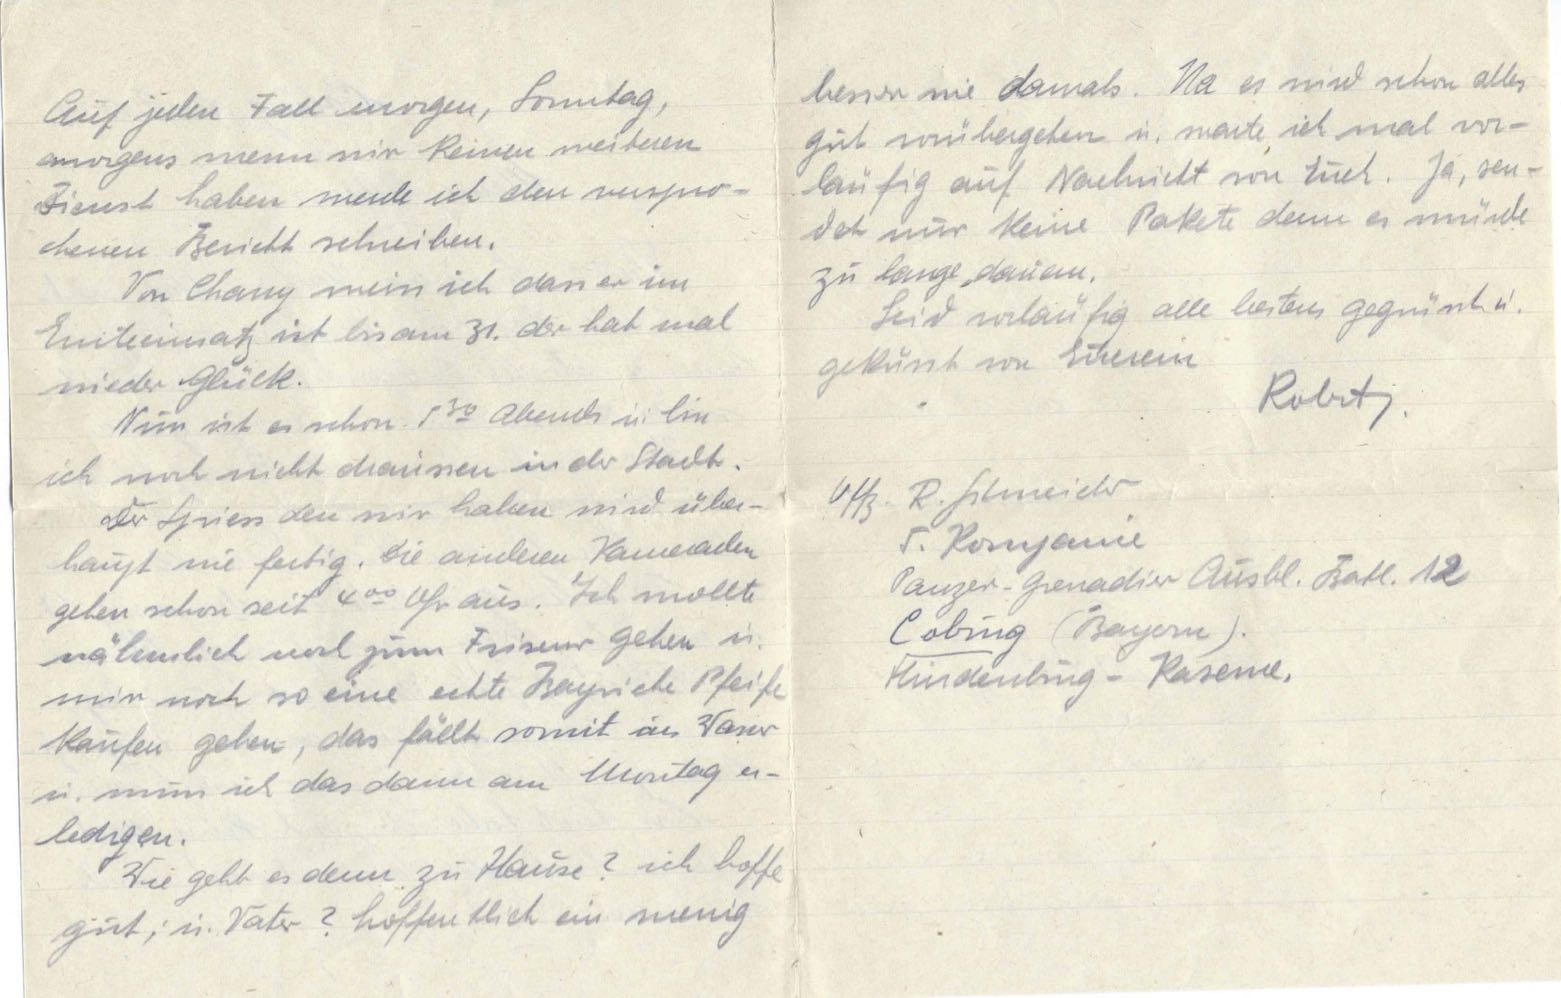 Auf jeden Fall morgen, Sonntag,
morgens wenn wir keinen weiteren
Dienst haben werde ich den verspro-
chenen Bericht schreiben.
Von Chamy weiss ich dass er im
Ernteeinsatz ist bis am 31. der hat mal
wieder Glück.
Nun ist es schon 5³⁰ Abends u. bin
ich noch nicht draussen in der Stadt.
Der Spiess den wir haben wird über-
haupt nie fertig. Die anderen Kameraden
gehen schon seit 4⁰⁰ Uhr aus. Ich wollte
nähmlich noch zum Friseur gehen u.
mir noch so eine echte Bayrische Pfeife
kaufen gehen, das fällt somit ins Wasser
u. muss ich das dann am Montag er-
ledigen.
Wie geht es denn zu Hause? ich hoffe
gut; u. Vater? hoffentlich ein wenig
besser wie damals. Na es wird schon alles
gut vorübergehen u. warte ich mal vor-
läufig auf Nachricht von Euch. Ja, sen-
det nur keine Pakete denn es würde
zu lange dauern.
Seid vorläufig alle bestens gegrüsst u.
geküsst von Eurem
Robert.
Uffz. R. Schneider
5. Kompanie
Panzer-Grenadier Ausbl. Batl. 12
Coburg (Bayern).
Hindenburg-Kaserne.